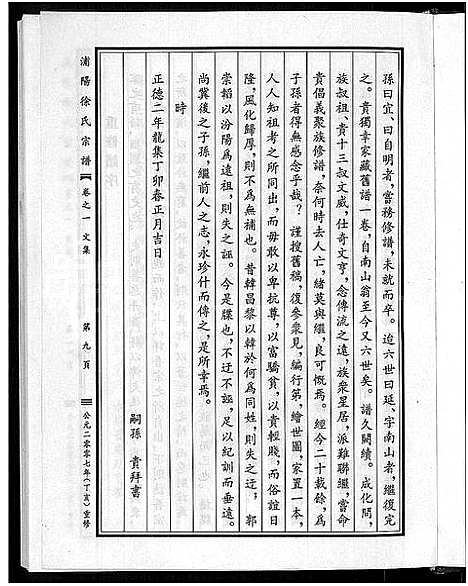 孫曰宜、曰自明者，嘗務修譜，未就而卒。迨六世曰延、字南山者，繼復完
之。貴獨幸家藏舊譜一卷，自南山翁至今又六世矣。譜久闕續。成化間，
族叔祖、貴十三叔文威，仕奇文亨，念傳流之遠，族衆星居，派難聯繼，當命
貴倡義聚族修譜，奈何時去人亡，緒莫與繼，良可慨焉。經今二十載餘，爲
子孫者得無感念乎哉？謹搜舊稿，復參衆見，編行第，繪世圖，家置一本，
人人知祖考之所同出，而毋敢以卑抗尊，以富驕貧，以貴輕賤，而俗誼日
隆，風化歸厚，則不爲無補也。昔韓昌黎以韓於何爲同姓，則失之迂；郭
崇韜以汾陽爲遠祖，則失之誣。今是牒也，不迂不誣，足以紀訓而垂遠。
尚冀後之子孫，繼前人之志，永珍什而傳之，是所幸焉。
時
正德二年龍集丁卯春正月吉日
嗣孫　貴拜書
浦陽徐氏宗譜　卷之一　文集　第九頁　公元二〇〇七年（丁亥）重修